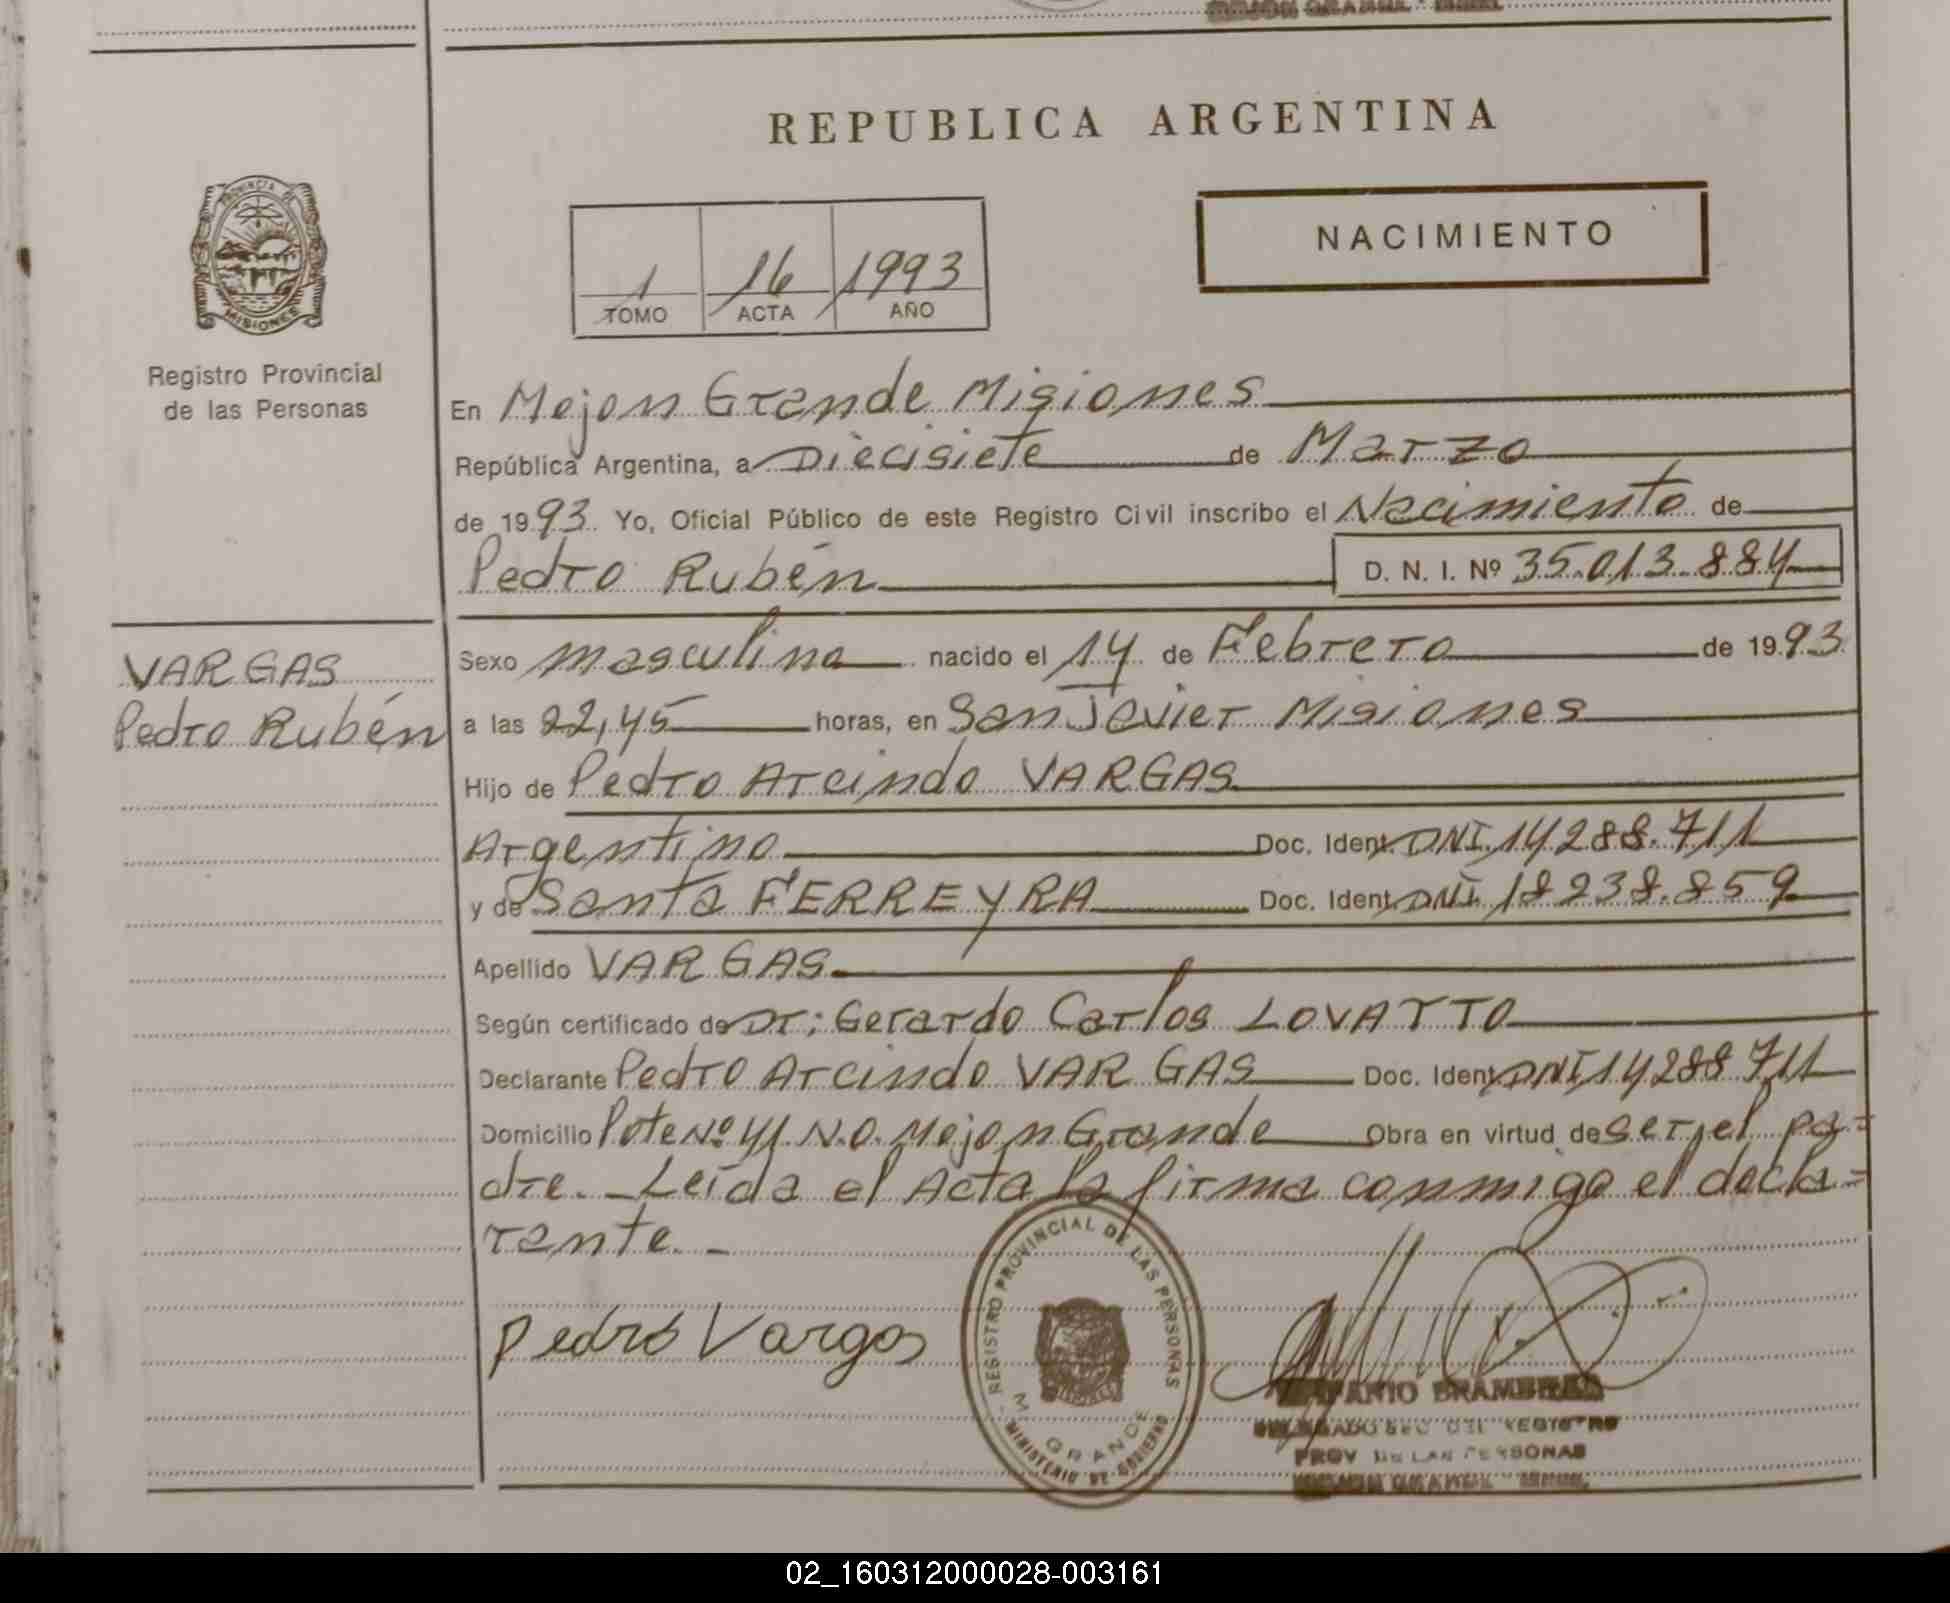 REPUBLICA ARGENTINA
NACIMIENTO
1 16 1993
TOMO ACTA AÑO
PROVINCIA DE
MISIONES
Registro Provincial
de las Personas
VARGAS
Pedro Rubén
En Mojon Grande Misiones
República Argentina, a Diecisiete de Marzo
de 1993 Yo, Oficial Público de este Registro Civil inscribo el Nacimiento de
Pedro Rubén D. N. I. Nº 35.013.884
Sexo masculino nacido el 14 de Febrero de 1993
a las 22,45 horas, en San Javier Misiones
Hijo de Pedro Arcindo VARGAS
Argentino Doc. Ident. DNI 14288.711
y de Santa FERREYRA Doc. Ident. DNI 18238.859
Apellido VARGAS
Según certificado de Dr: Gerardo Carlos LOVATTO
Declarante Pedro Arcindo VARGAS Doc. Ident. DNI 14288711
Domicilio Lote Nº 41 N.O. Mojon Grande Obra en virtud de ser el pa=
dre. - Leída el Acta la firma conmigo el decla=
rante. -
Pedro Vargas
REGISTRO PROVINCIAL DE LAS PERSONAS
GRANDE
MINISTERIO DE GOBIERNO
PROV DE LAS PERSONAS
02_160312000028-003161